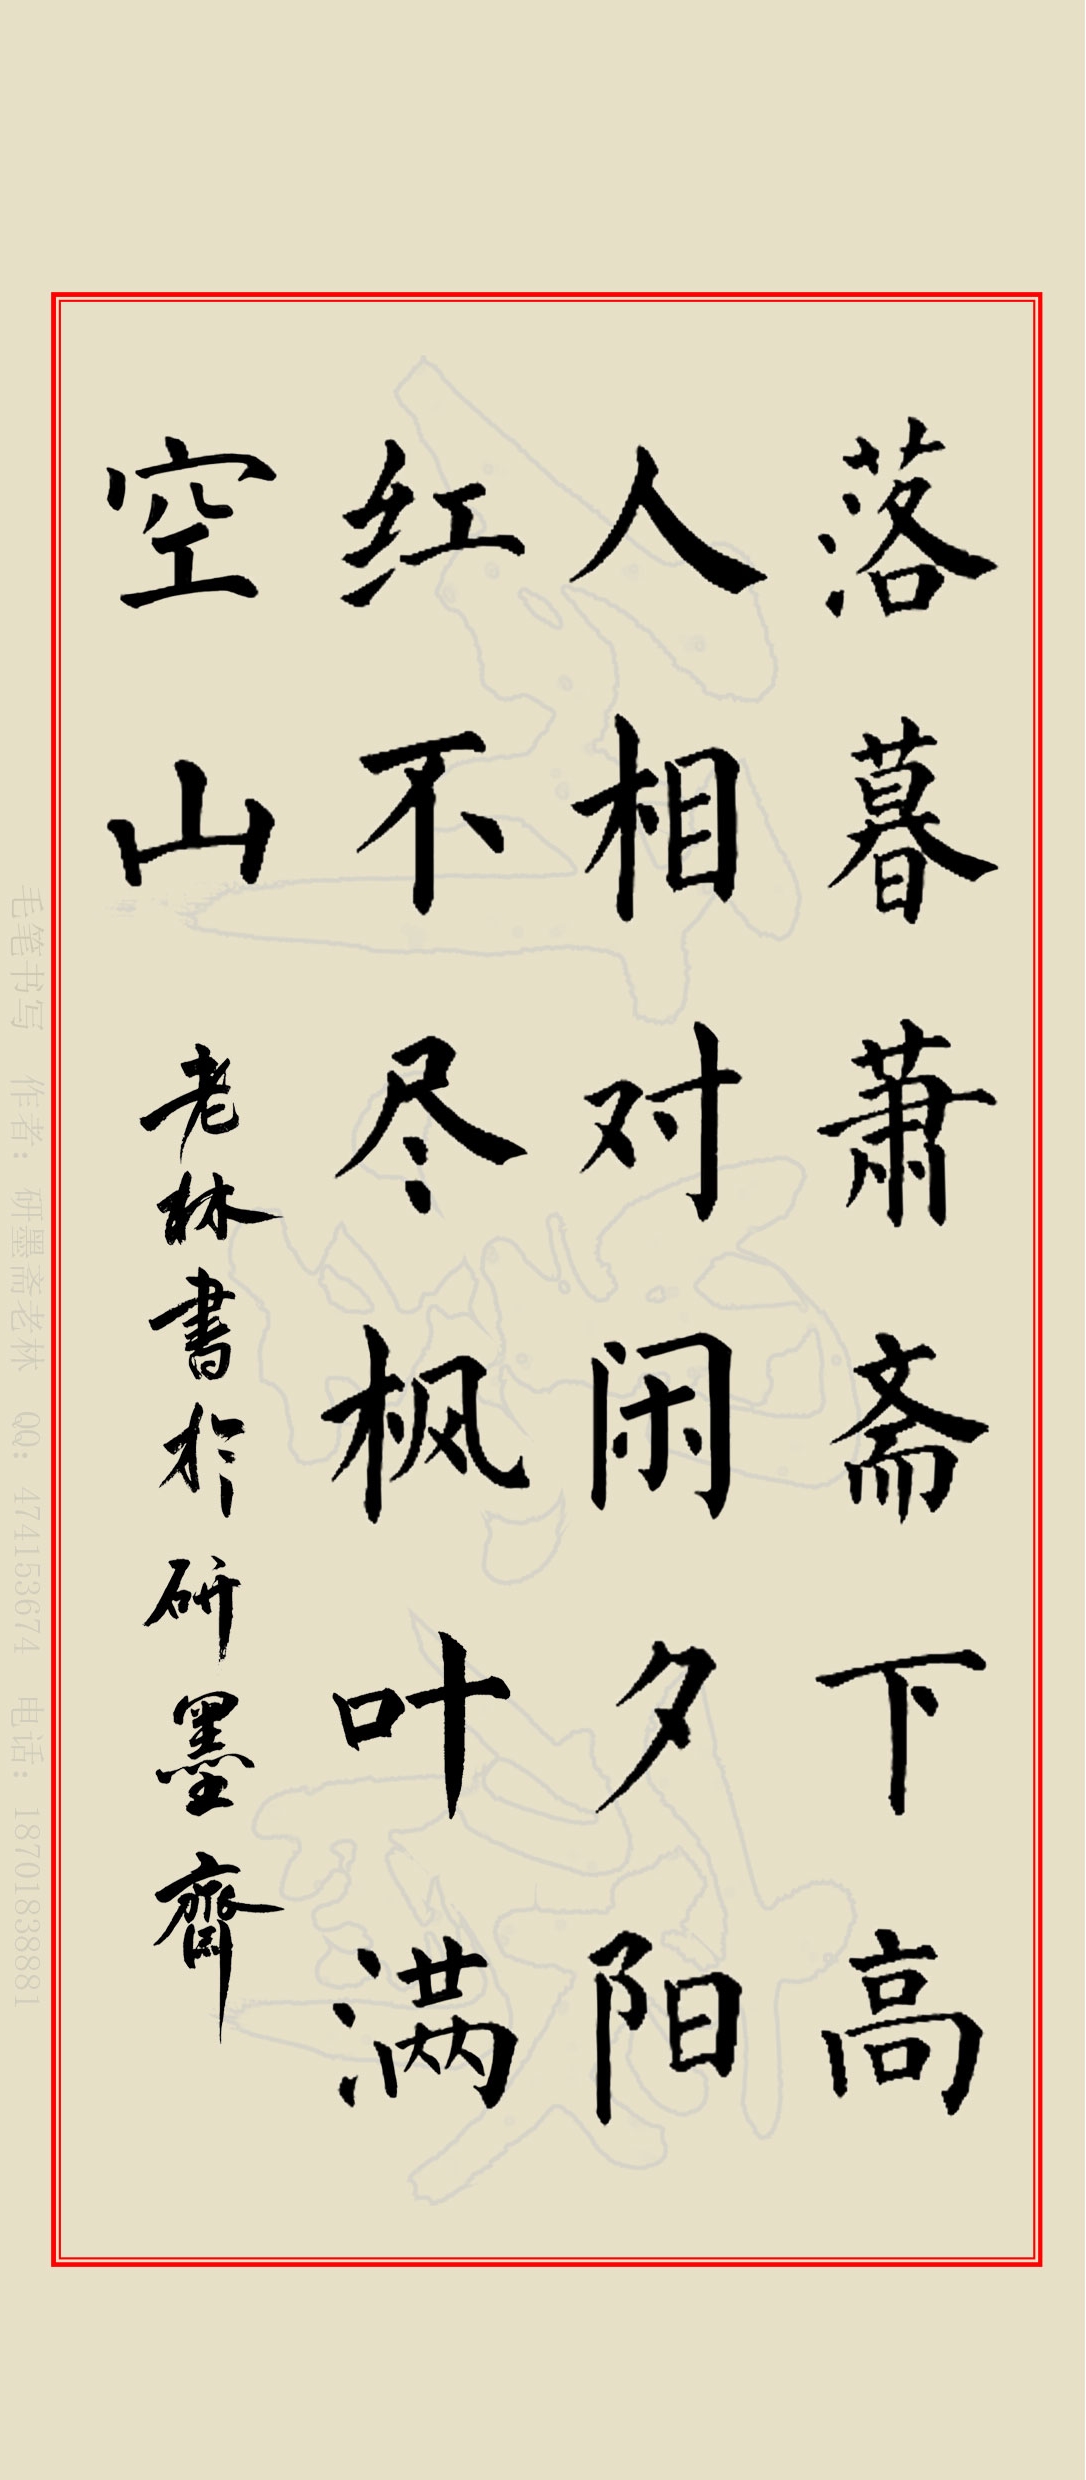 落暮萧斋下高
人相对闲夕阳
红不尽枫叶满
空山
老林書於研墨齋
毛笔书写 作者：研墨斋老林 QQ：474153674 电话：18701838881